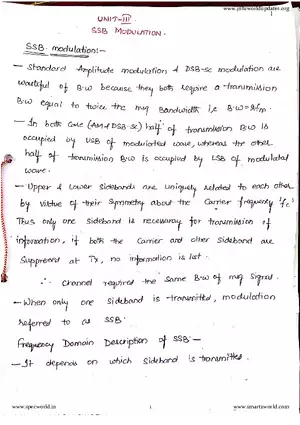 www.jntuworldupdates.org
UNIT-III
SSB MODULATION.
SSB modulation:-
- Standard Amplitude modulation & DSB-SC modulation are
wasteful of B.W because they both require a transmission
B.W equal to twice the msg Bandwidth i.e B.W=2fm.
- In both case (AM & DSB-SC) half of transmission B.W is
occupied by USB of modulated wave, whereas the other
half of transmission B.W is occupied by LSB of modulated
wave.
- Upper & Lower Sidebands are uniquely related to each other
by virtue of their Symmetry about the Carrier frequency 'fc'
Thus only one Sideband is necessary for transmission of
information, if both the Carrier and other Sideband are
Suppressed at Tx, no information is lost.
∴ Channel required the Same B.W of msg Signal.
- When only one Sideband is transmitted, modulation
referred to as SSB.
Frequency Domain Description of SSB:-
- It depends on which Sideband is transmitted.
www.specworld.in
1
www.smartzworld.com